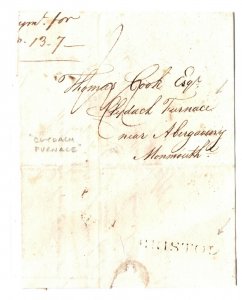 for
13-7-
Thomas Cook Esqr
Clydach Furnace
near Abergaveny
Monmouth
"CLYDACH
FURNACE"
BRISTOL